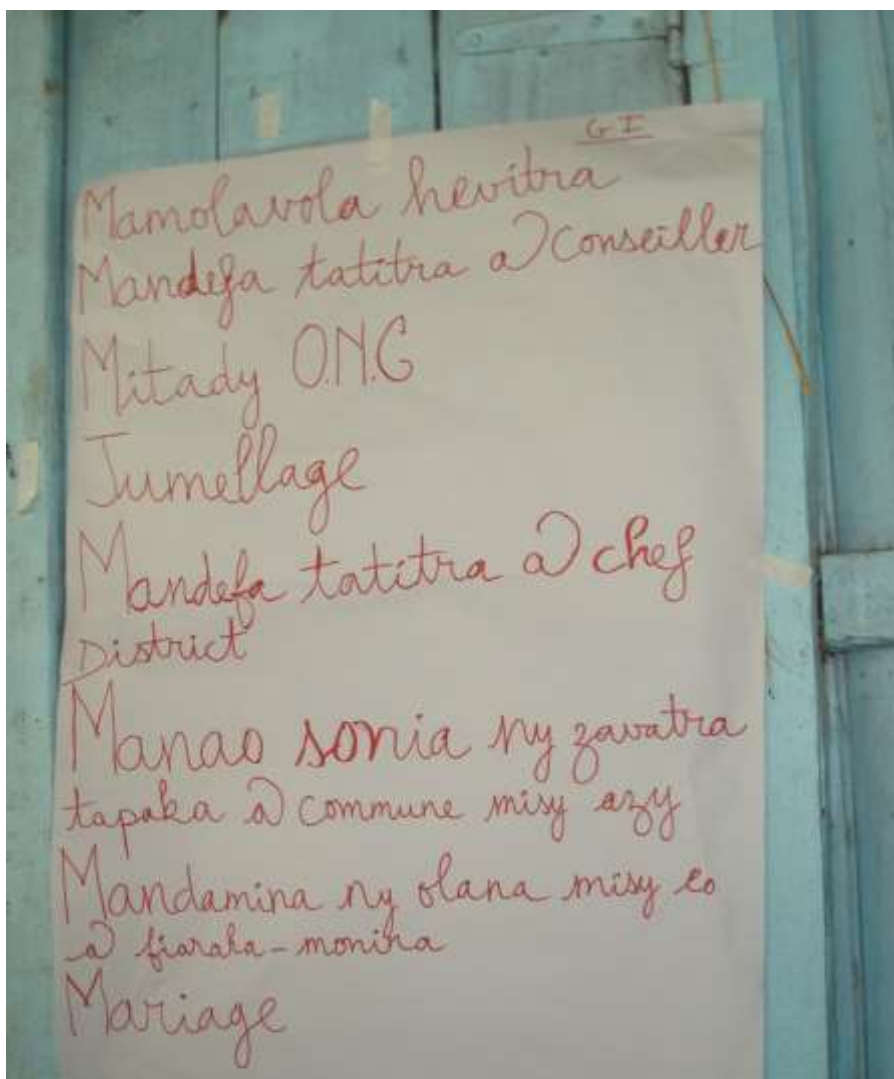 G I
Mamolavola hevitra
Mandefa tatitra a) conseiller
Mitady O.N.G
Jumellage
Mandefa tatitra a) chef
District
Manao sonia ny zavatra
tapaka a) commune misy azy
Mandamina ny olana misy eo
a) fiaraha-monina
Mariage